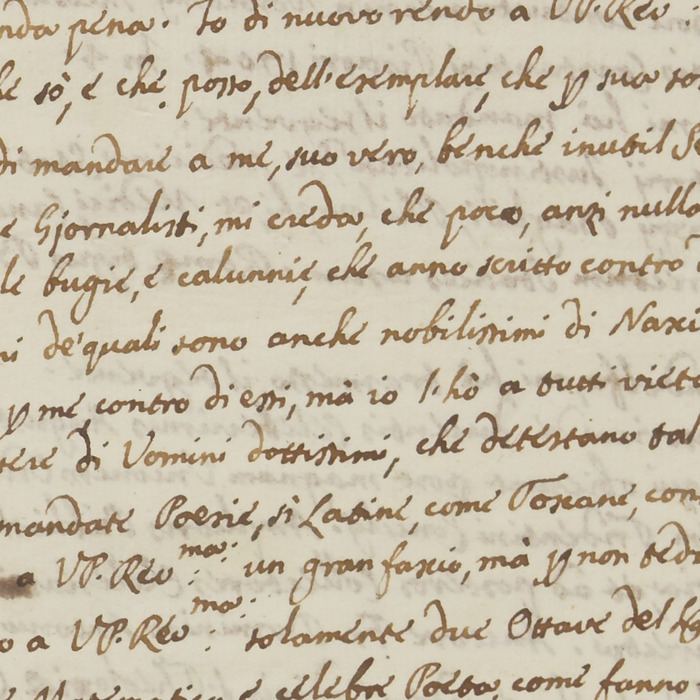 pena. Io di nuovo rendo a VP. Reu
sò, e che posso, dell'esemplare, che ꝑ sua
di mandare a me, suo vero, benche inutil
e Gjornalisti, mi creda, che poco, anzi nulla
le bugie, e calunnie, che anno scritto contro
de' quali sono anche nobilissimi di Nasci
ꝑ me contro di essi, mà io l'hò a tutti vieta
di Uomini dottissimi, che detestano tal
mandate Poesie, sì Latine, come Toscane, con
a VP. Reu ma: un gran fascio, mà ꝑ non tedi
o a VP. Reu ma: solamente due Ottave del
e celebre Poeta, come fanno